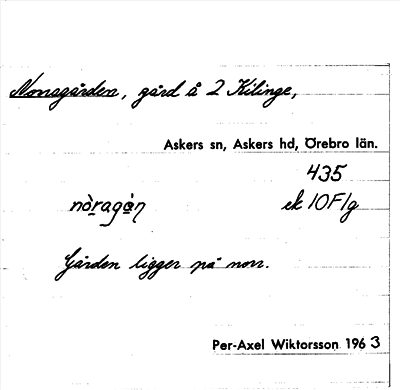 Norragården, gård å 2 Kilinge,
Askers sn, Askers hd, Örebro län.
435
nòragạ̊ɳ ek 10F1g
Gården ligger på norr.
Per-Axel Wiktorsson 1963